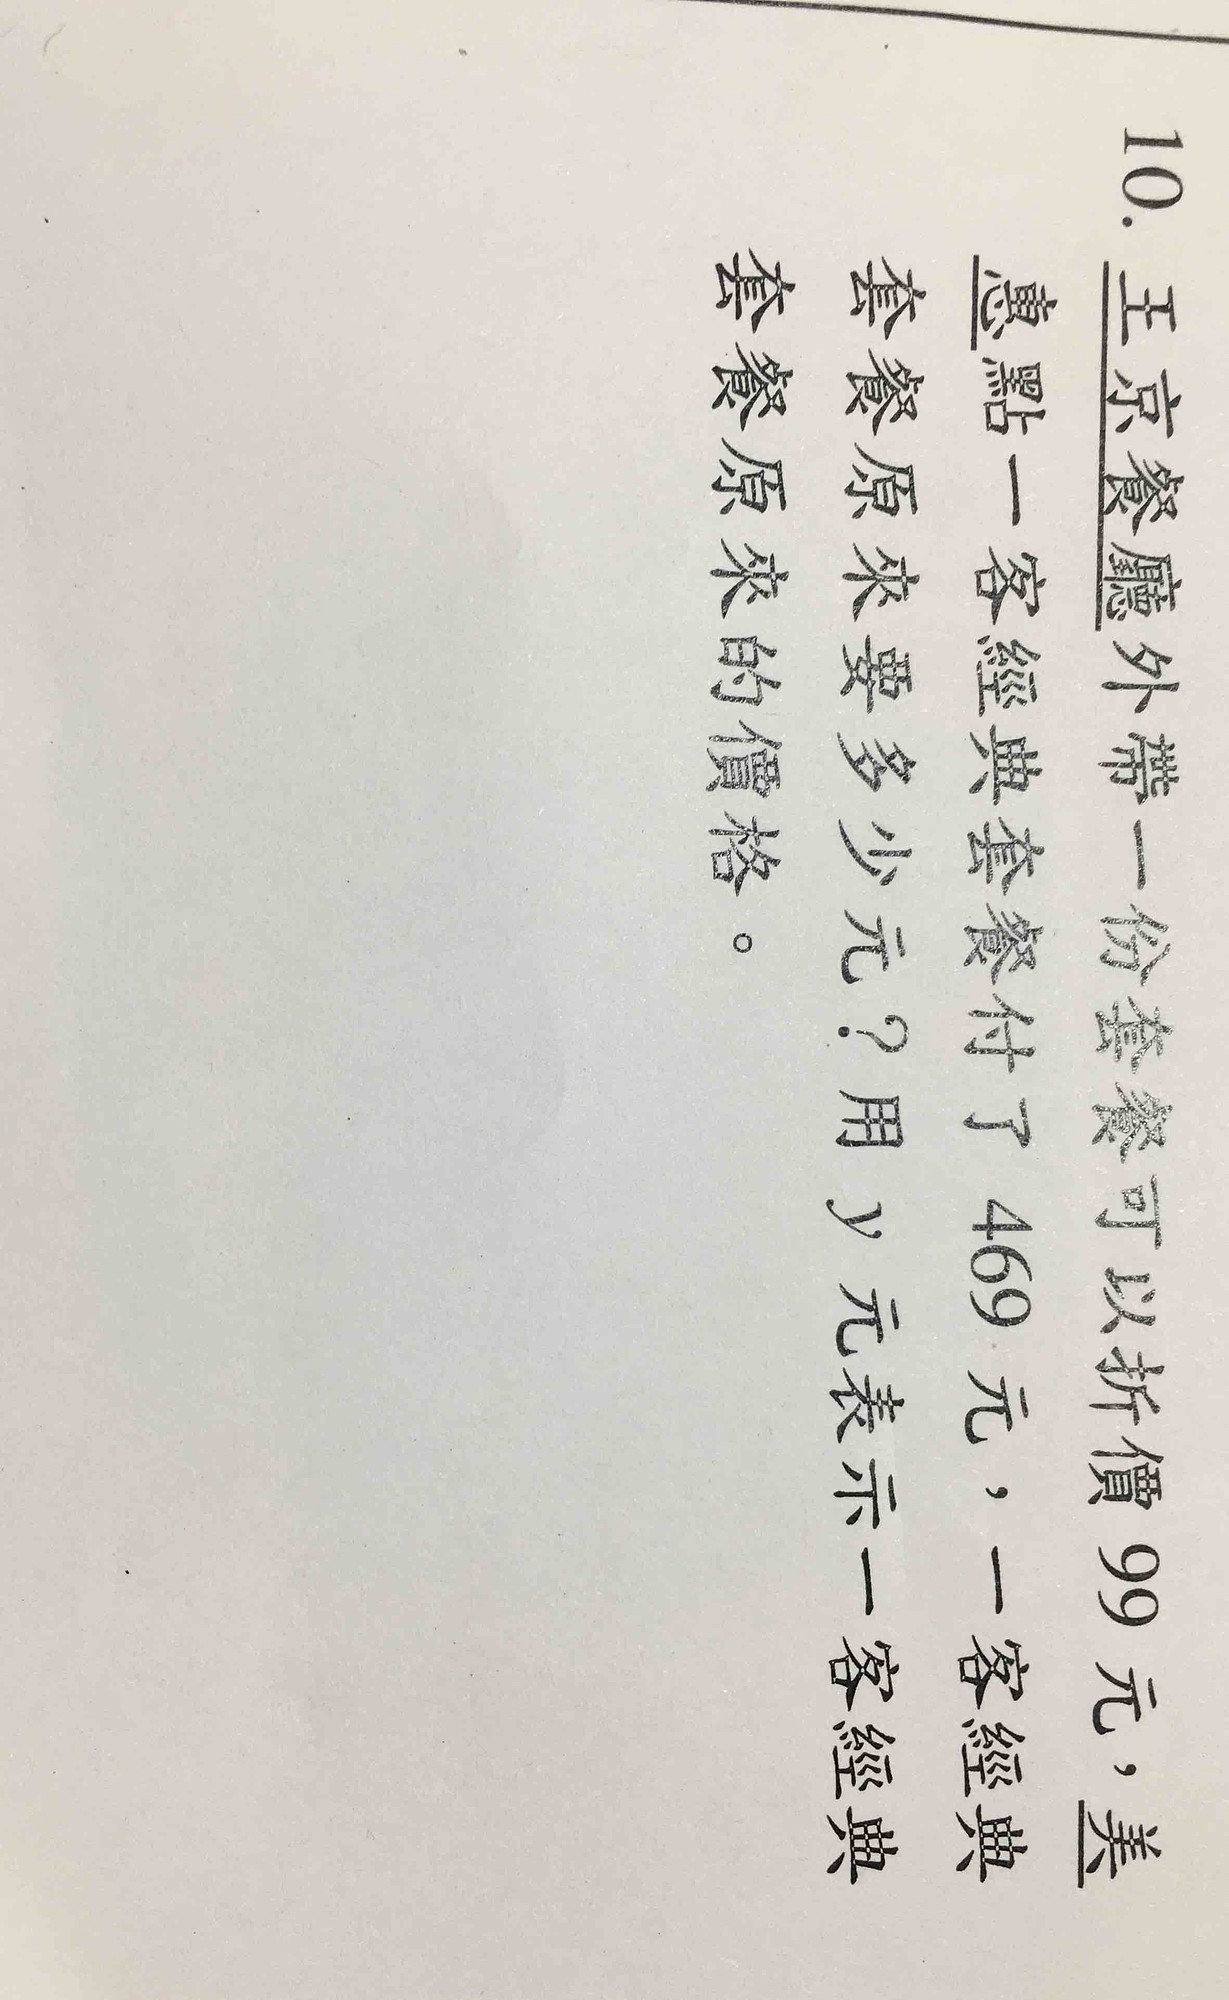 10. 王京餐廳外帶一份套餐可以折價 99 元，美
惠點一客經典套餐付了 469 元，一客經典
套餐原來要多少元？用 y 元表示一客經典
套餐原來的價格。